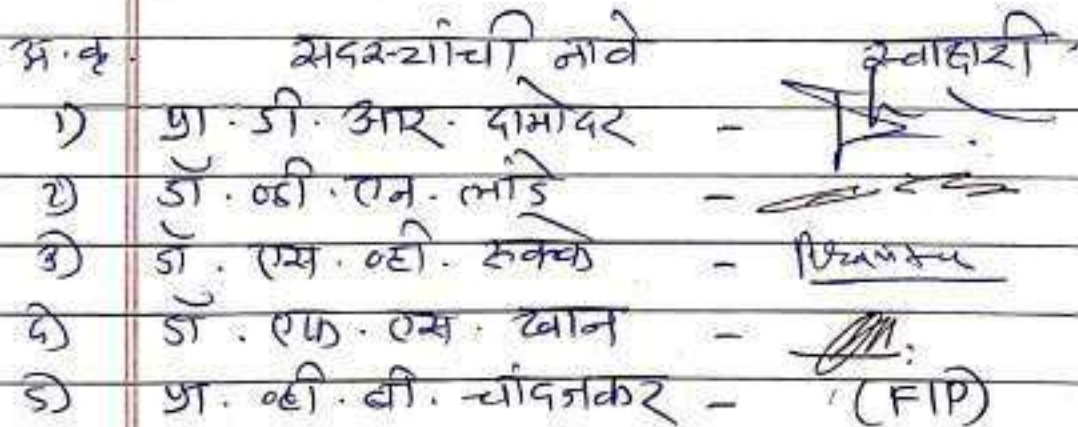 अ.क्र. सदस्यांची नावे स्वाक्षरी
1) प्रा. डी. आर. दामोदर -
2) डॉ. व्ही. एन. लांडे -
3) डॉ. एस. व्ही. रुक्के -
4) डॉ. एफ. एस. खान -
5) प्रा. व्ही. बी. चांदजकर - (FIP)